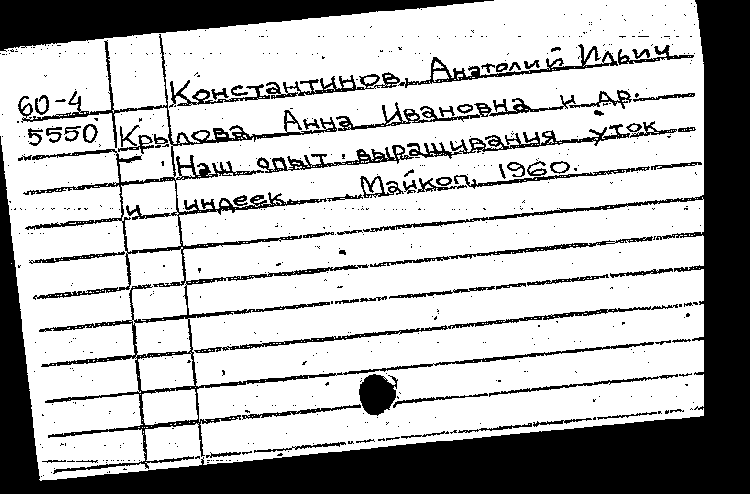 60-4 Константинов, Анатолий Ильич
5550 Крылова, Анна Ивановна и др.
Наш опыт выращивания уток
и индеек. Майкоп, 1960.